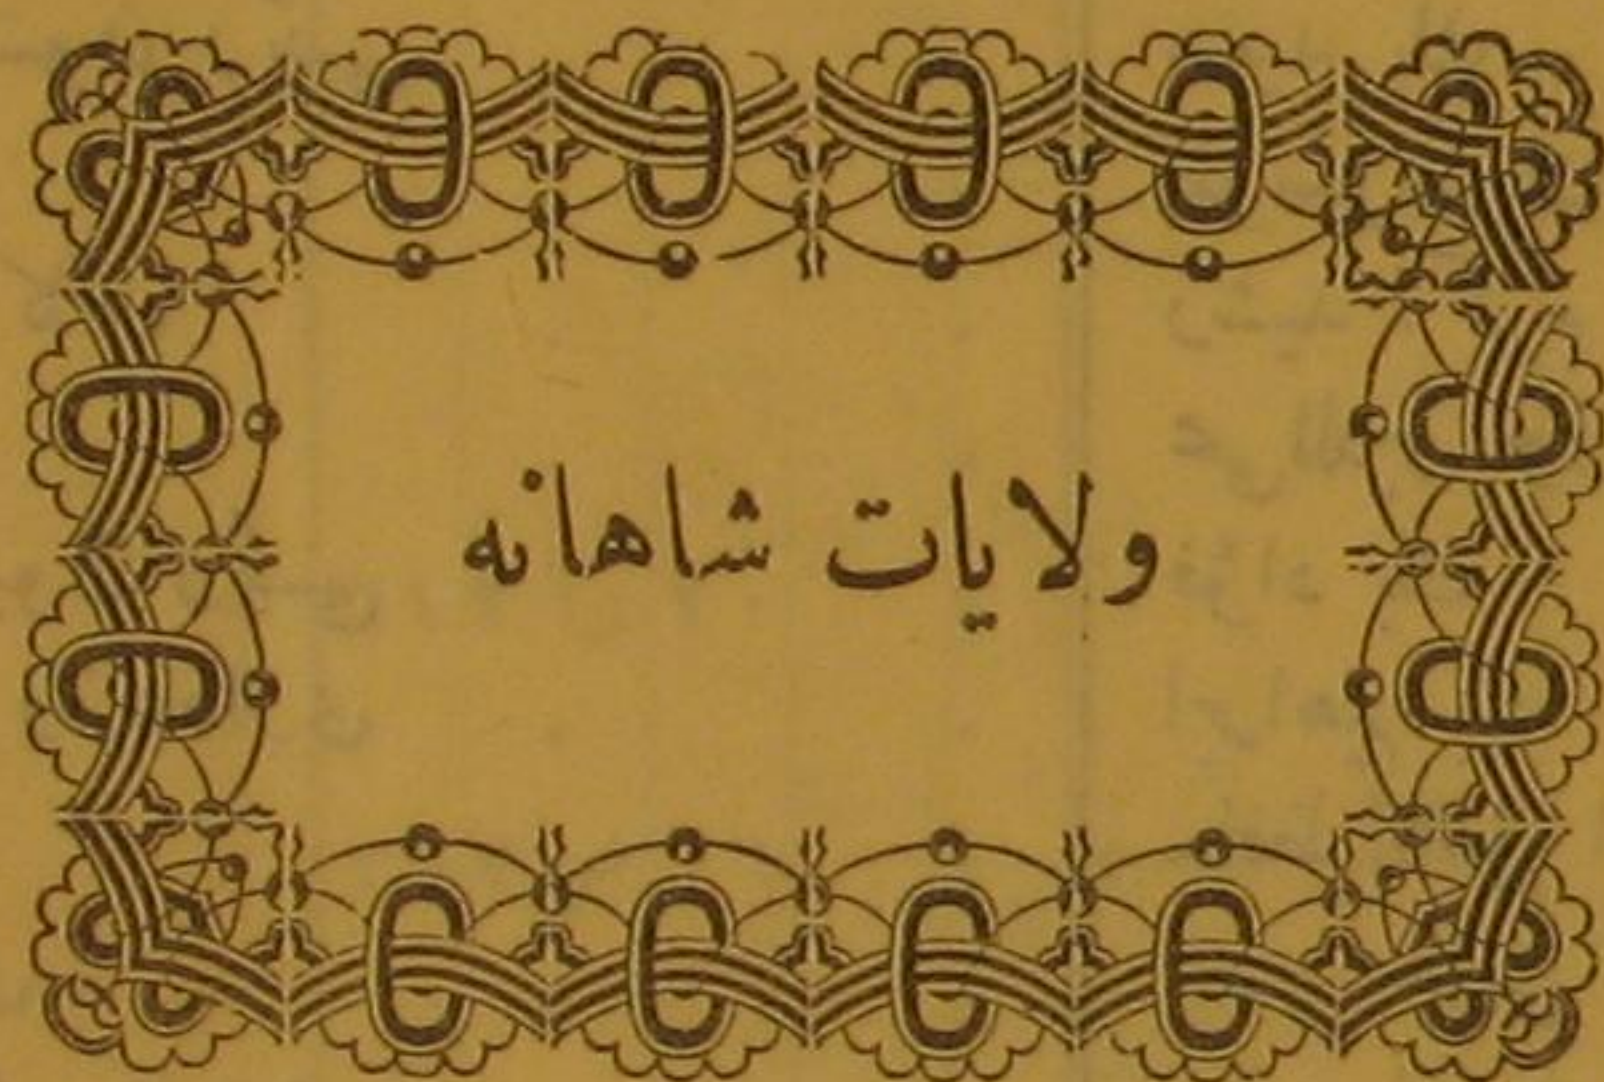 ولايات شاهانه